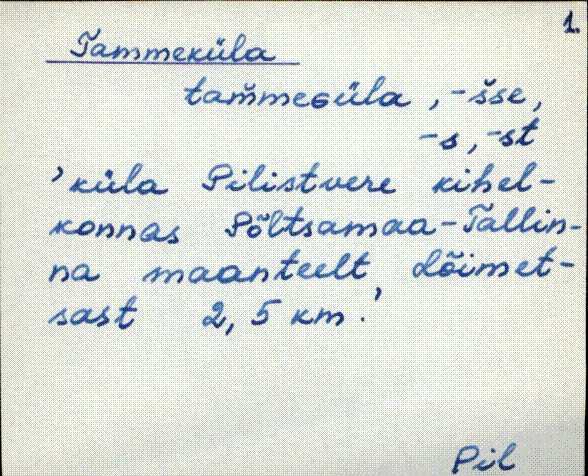 1.
Tammeküla
tam̆meGüla, -šse,
-s, -st
'küla Pilistvere kihel-
konnas Põltsamaa-Tallin-
na maanteelt Lõimet-
sast 2,5 km.'
Pil